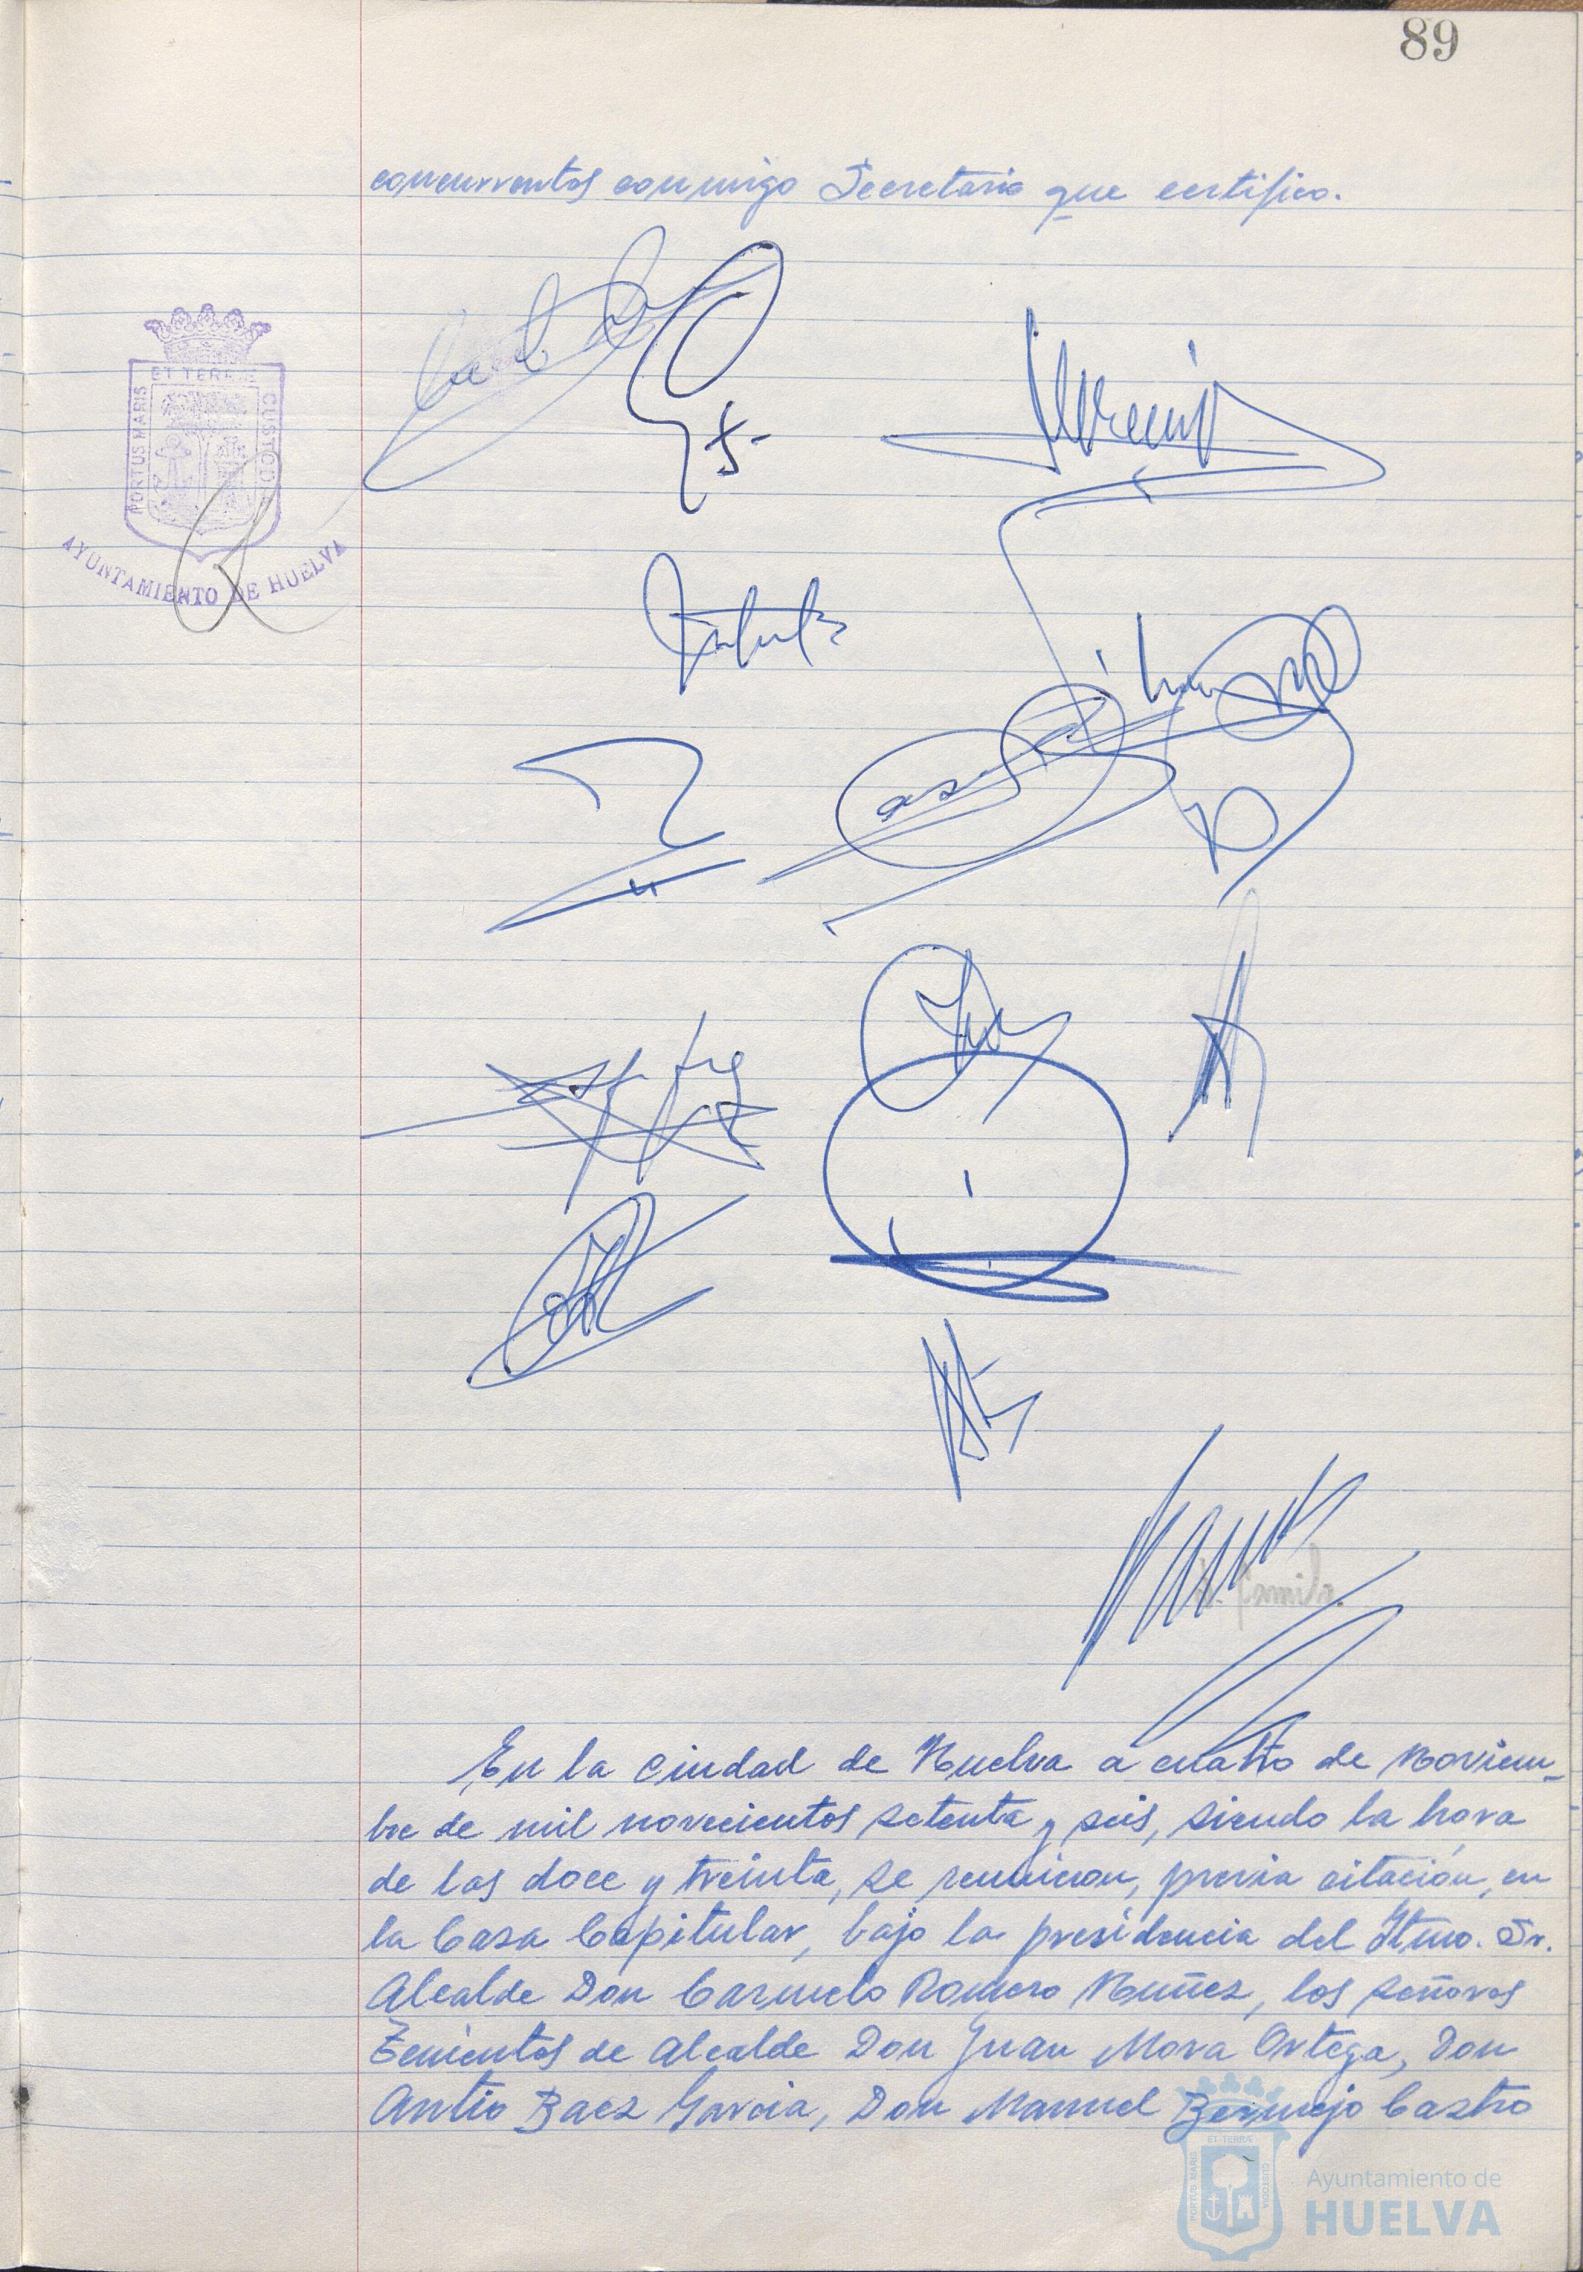 89
concurrentes conmigo Secretario que certifico.
ET TERRAE
PORTUS MARIS
CUSTODIA
AYUNTAMIENTO DE HUELVA
En la Ciudad de Huelva a cuatro de Noviem-
bre de mil novecientos setenta y seis, siendo la hora
de las doce y treinta, se reunieron, previa citación, en
la Casa Capitular, bajo la presidencia del Iltmo. Sr.
Alcalde Don Carmelo Romero Núñez, los señores
Tenientes de Alcalde Don Juan Mora Ortega, Don
Antio Baez Garcia, Don Manuel Bermejo Castro
ET TERRÆ
PORTUS MARIS
CUSTODIA
Ayuntamiento de
HUELVA